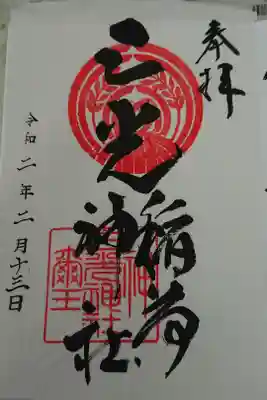 奉拝
三光稲荷
神社
令和二年二月十三日